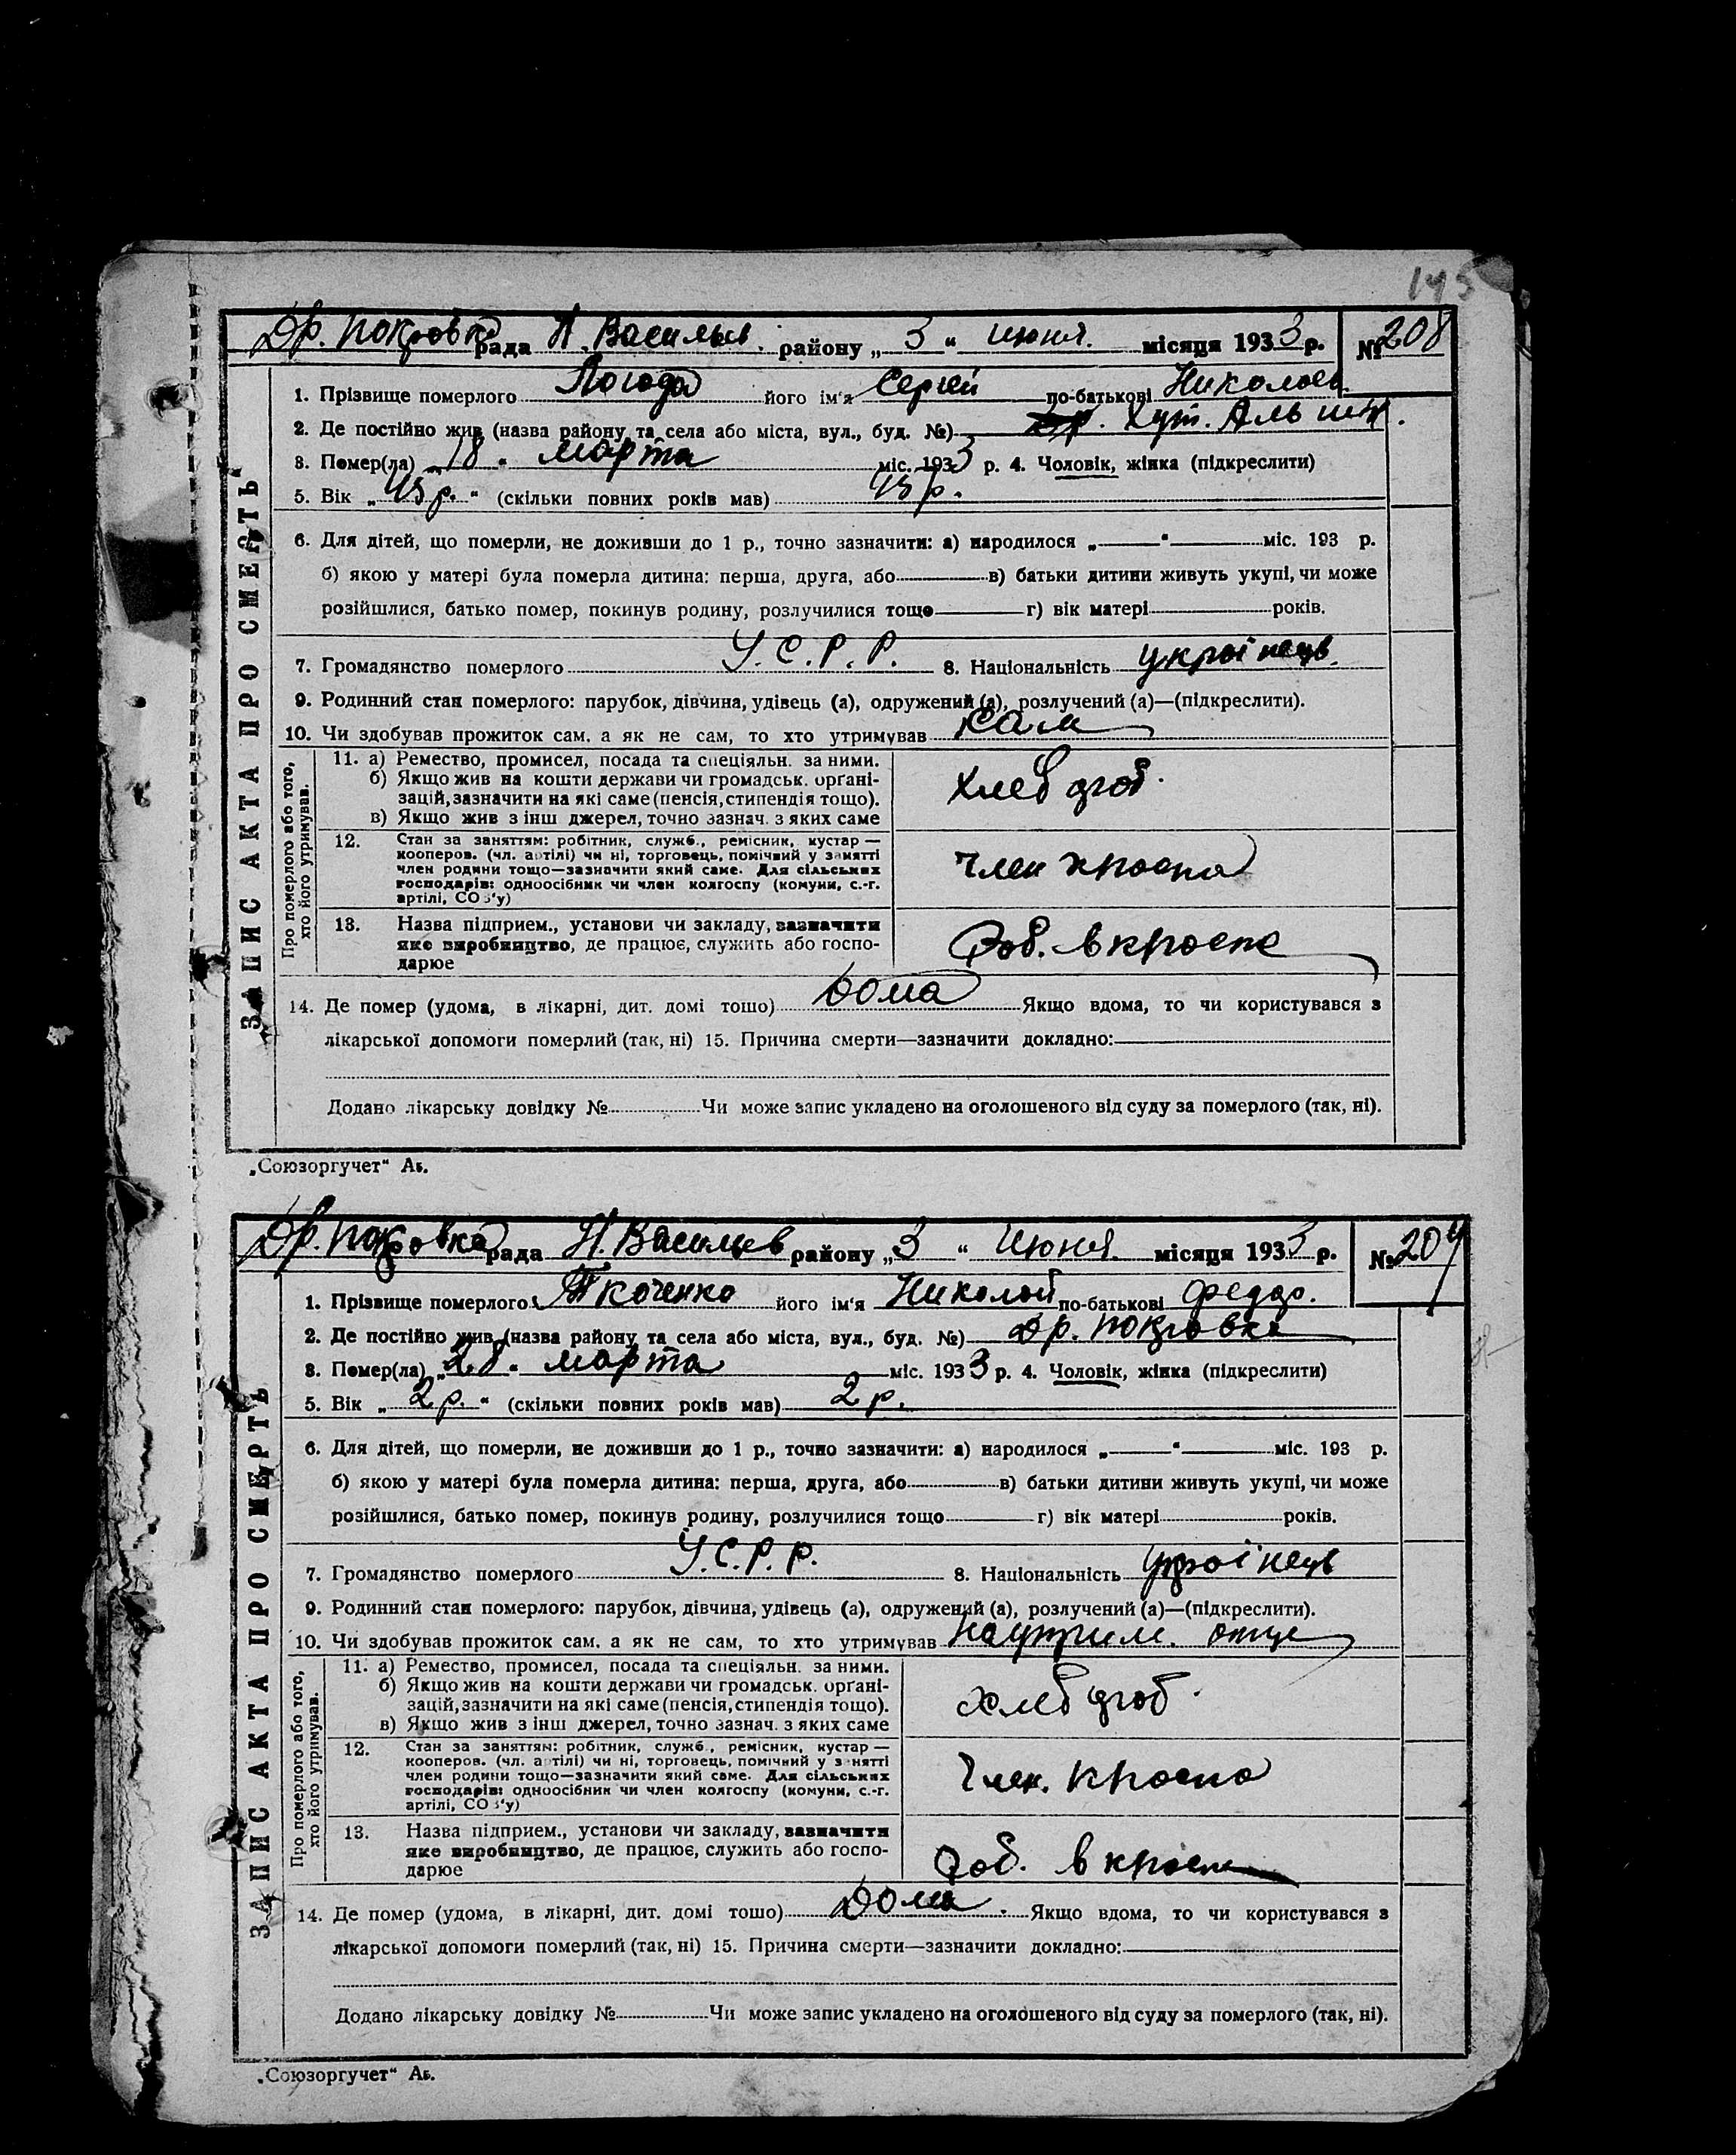 145
Др. Покровка рада Н. Васильев. району „ 3 “ июня. місяця 1933 р. № 208
1. Прізвище померлого Погода його ім'я Сергей по-батькові Николаев.
2. Де постійно жив (назва району та села або міста, вул., буд. №) Хут.
3. Помер(ла) „ 18 “ марта міс. 1933 р. 4. Чоловік, жінка (підкреслити)
5. Вік „ 45 р. “ (скільки повних років мав) 45 р.
6. Для дітей, що померли, не доживши до 1 р., точно зазначити: а) народилося „ — “ — міс. 193 р.
б) якою у матері була померла дитина: перша, друга, або — в) батьки дитини живуть укупі, чи може
розійшлися, батько помер, покинув родину, розлучилися тощо — г) вік матері років.
7. Громадянство померлого У.С.Р.Р. 8. Національність україиець
9. Родинний стан померлого: парубок, дівчина, удівець (а), одружений (а), розлучений (а)—(підкреслити).
10. Чи здобував прожиток сам, а як не сам, то хто утримував сам
Про померлого або того, хто його утримував.
11. а) Ремество, промисел, посада та спеціяльн. за ними.
б) Якщо жив на кошти держави чи громадськ. орґані-
зацій, зазначити на які саме (пенсія, стипендія тощо).
в) Якщо жив з інш джерел, точно зазнач. з яких саме
Хлеб
12. Стан за заняттям: робітник, служб., ремісник, кустар —
кооперов. (чл. артілі) чи ні, торговець, помічний у занятті
член родини тощо—зазначити який саме. Для сільських
господарів: одноосібник чи член колгоспу (комуни, с.-г.
артілі, СОЗ'у)
член
13. Назва підприем., установи чи закладу, зазначити
яке виробництво, де працює, служить або госпо-
дарює
Роб. в
14. Де помер (удома, в лікарні, дит. домі тошо) дома Якщо вдома, то чи користувався з
лікарської допомоги померлий (так, ні) 15. Причина смерти—зазначити докладно:
Додано лікарську довідку № Чи може запис укладено на оголошеного від суду за померлого (так, ні).
ЗАПИС АКТА ПРО СМЕРТЬ
„Союзоргучет“
Др. Покровка рада Н. Васильев району „ 3 “ июня. місяця 1933 р. № 209
1. Прізвище померлого Ткаченко його ім'я Николай по-батькові Феддо.
2. Де постійно жив (назва району та села або міста, вул., буд. №) Др. Покровка
3. Помер(ла) „ 28 “ марта міс. 1933 р. 4. Чоловік, жінка (підкреслити)
5. Вік „ 2 р. “ (скільки повних років мав) 2 р.
6. Для дітей, що померли, не доживши до 1 р., точно зазначити: а) народилося „ — “ — міс. 193 р.
б) якою у матері була померла дитина: перша, друга, або — в) батьки дитини живуть укупі, чи може
розійшлися, батько помер, покинув родину, розлучилися тощо — г) вік матері років.
7. Громадянство померлого У.С.Р.Р. 8. Національність україиець
9. Родинний стан померлого: парубок, дівчина, удівець (а), одружений (а), розлучений (а)—(підкреслити).
10. Чи здобував прожиток сам, а як не сам, то хто утримував на утрим. отце
Про померлого або того, хто його утримував.
11. а) Ремество, промисел, посада та спеціяльн. за ними.
б) Якщо жив на кошти держави чи громадськ. орґані-
зацій, зазначити на які саме (пенсія, стипендія тощо).
в) Якщо жив з інш джерел, точно зазнач. з яких саме
хлеб
12. Стан за заняттям: робітник, служб., ремісник, кустар —
кооперов. (чл. артілі) чи ні, торговець, помічний у занятті
член родини тощо—зазначити який саме. Для сільських
господарів: одноосібник чи член колгоспу (комуни, с.-г.
артілі, СОЗ'у)
Член.
13. Назва підприем., установи чи закладу, зазначити
яке виробництво, де працює, служить або госпо-
дарює
Роб. в
14. Де помер (удома, в лікарні, дит. домі тошо) дома. Якщо вдома, то чи користувався з
лікарської допомоги померлий (так, ні) 15. Причина смерти—зазначити докладно:
Додано лікарську довідку № Чи може запис укладено на оголошеного від суду за померлого (так, ні).
ЗАПИС АКТА ПРО СМЕРТЬ
„Союзоргучет“